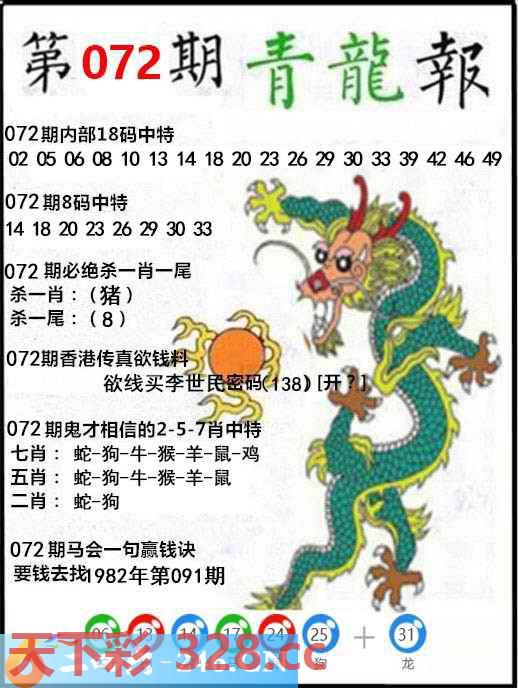 第072期青龍報
072期内部18码中特
02 05 06 08 10 13 14 18 20 23 26 29 30 33 39 42 46 49
072期8码中特
14 18 20 23 26 29 30 33
072期必绝杀一肖一尾
杀一肖：（猪）
杀一尾：（8）
072期香港传真欲钱料
欲线买李世民密码(138)[开?]
072期鬼才相信的2-5-7肖中特
七肖：蛇-狗-牛-猴-羊-鼠-鸡
五肖：蛇-狗-牛-猴-羊-鼠
二肖：蛇-狗
072期马会一句赢钱诀
要钱去找1982年第091期
06 13 14 17 24 25 + 31
狗 龙
天下彩-328.cc